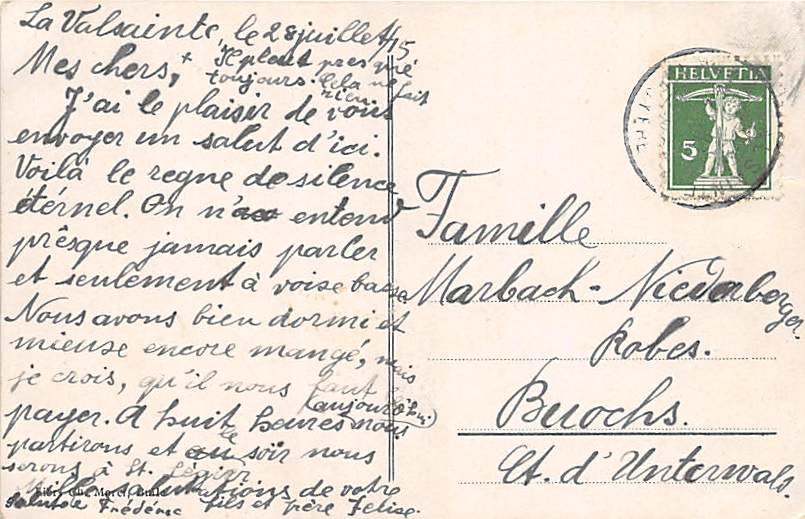 La Valsainte, le 28 juillet 15.
Mes chers, + Il pleut presque
toujours. Cela ne fait
rien.
J'ai le plaisir de vous
envoyer un salut d'ici.
Voilà le regne de silence
éternel. On n' entend
prêsque jamais parler
et seulement à voise basse
Nous avons bien dormi et
mieuse encore mangé, mais
je crois, qu'il nous faut
(aujourd'hui)
payer. A huit heures nous
partirons et le soir nous
serons à St. Légier
Mille salutations de votre
fils et frère Felise.
Salut de Frédéric
Morel, Bulle
HELVETIA
5
Famille
Marbach-Niederberger.
Robes.
Buochs.
Ct. d'Unterwald.